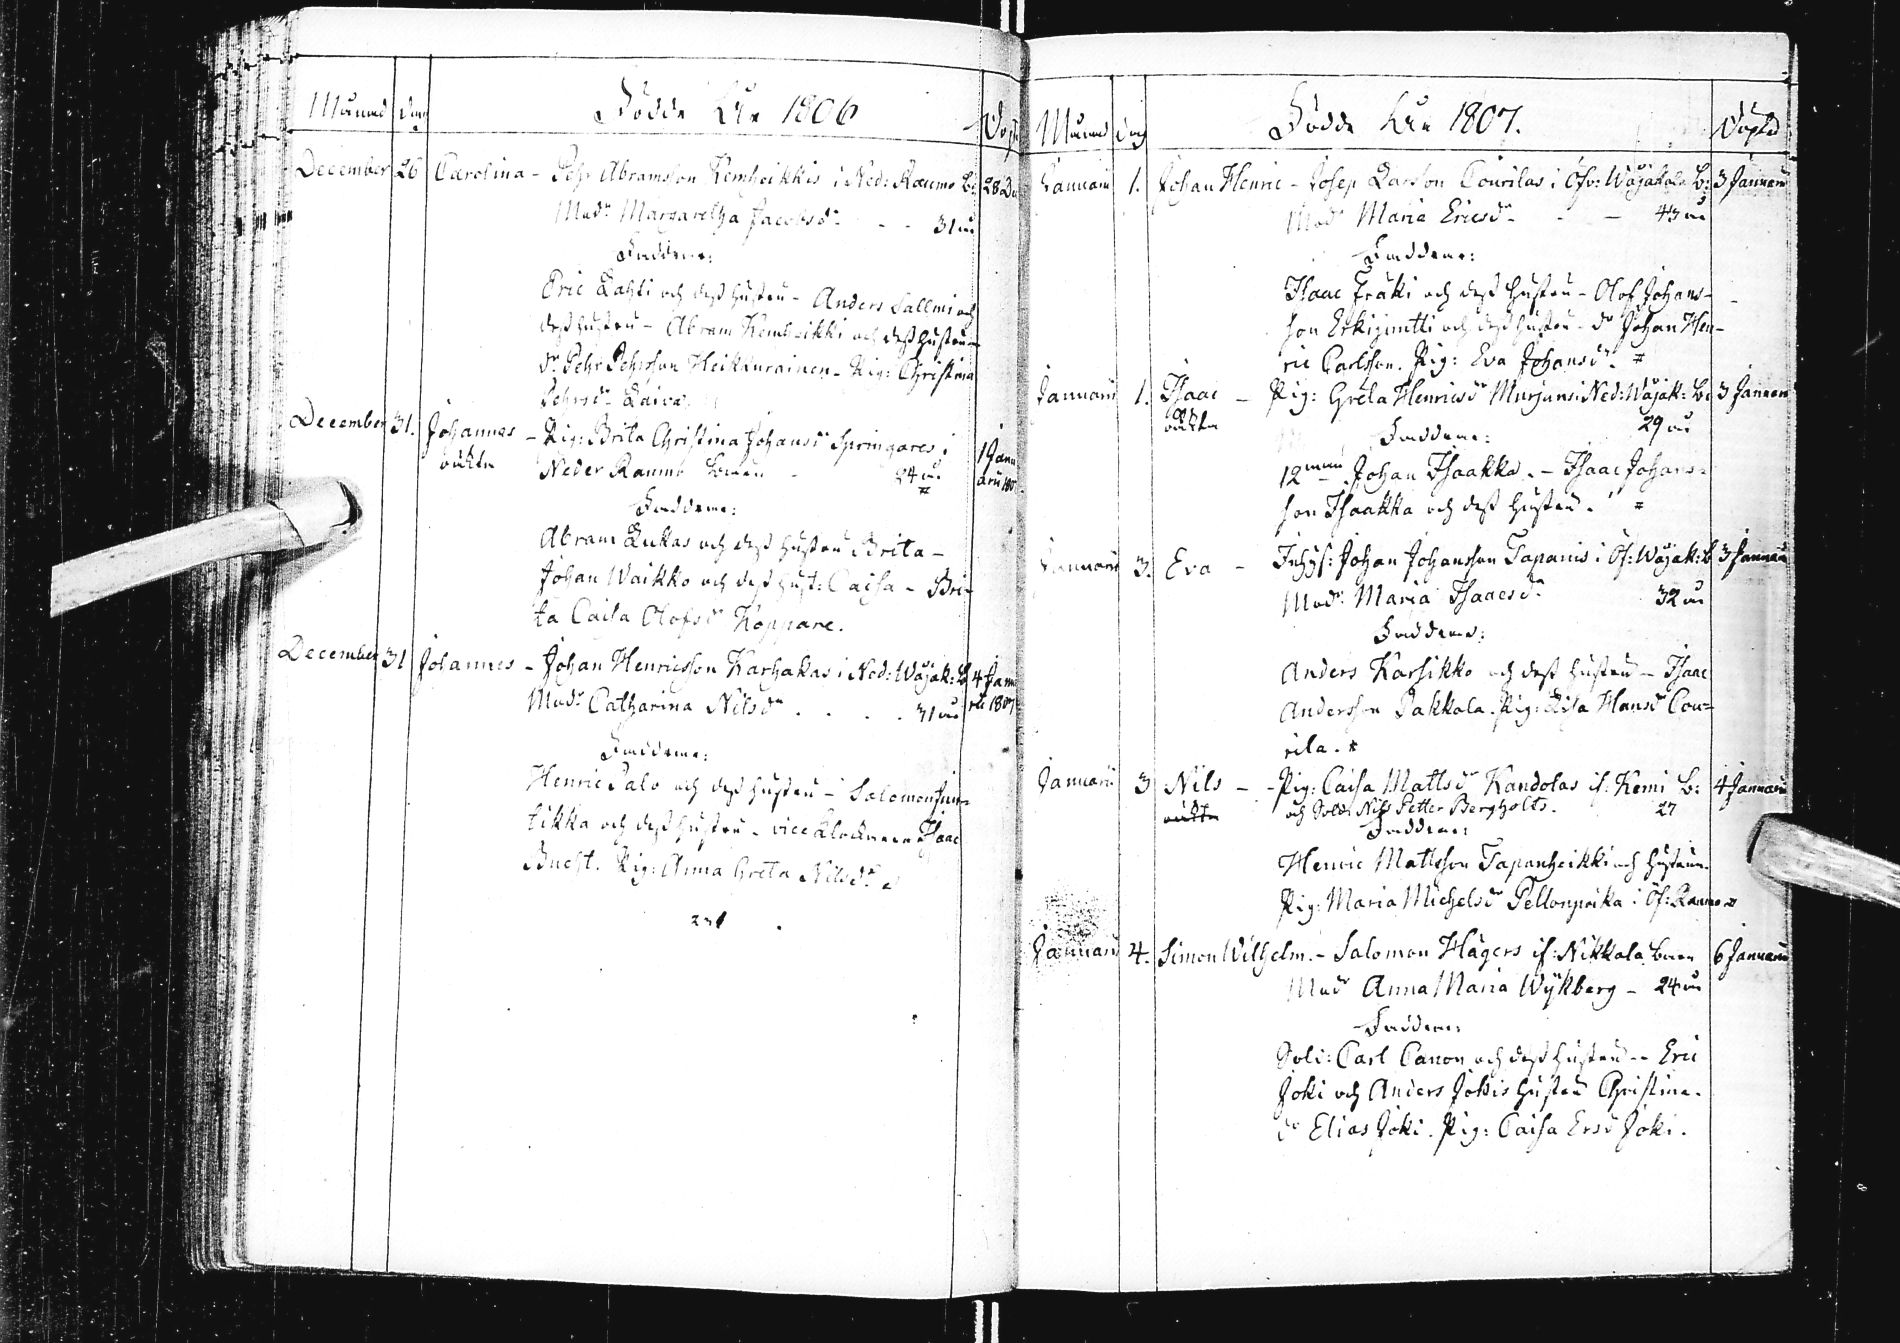 Månad dag Födde Åhr 1806 Döpt
December 26 Carolina - Pehr Abramsson Kemheikkis i Ned: Raumo B: 28 De
Modr Margaretha Jacobsdr - - 31 år
Faddrar:
Eric Lahti och dess hustru - Anders Sallmi och
dess hustru - Abram Kemheikki och dess hustru
dr Pehr Pehrsson Heikkurainen - Pig: Christina
Pehrsdr Laiva
December 31. Johannes - Pig: Brita Christina Johansdr Springares i 1 Janu
oäkta Neder Raumo Boeen - 24 år arii 1807
Faddrar:
Abram Lukas och dess hustru Brita -
Johan Waikko och dess hust: Caisa - Bri-
ta Caisa Olofsdr Koppare.
December 31 Johannes - Johan Henricsson Karhakas i Ned: Wojak: B 4 Janu
Modr Catharina Nilsdr . . . . 31 år rii 1807
Faddrar:
Henric Palo och dess hustru - Salomon
tikka och dess hustru - vice Klockaren Isaac
Bucht. Pig: Anna Greta Nilsdr
231
Månad dag Födde Åhr 1807. Döpta
Januarii 1. Johan Henric - Josep Larsson Courilas i Öfv: Wojakala B: 3 Januarii
Modr Maria Ericsdr - - - 43 år
Faddrar:
Isaac Fräki och dess hustru - Olof Johans-
son Erkizimtti och dess hustru - dr Johan Hen-
ric Carlsson. Pig: Eva Johansdr =
Januarii 1. Isaac - Pig: Greta Henricsdr Murjuns i Ned: Wojak: B: 3 Januarii
oäkta 29 år
Faddrar:
12man Johan Isaakka. - Isaac Johans=
son Isaakka och dess hustru. =
Januarii 3. Eva - Inhys: Johan Johansson Tapanis i Öf: Wojak: B 3 Januarii
Modr Maria Isaacsdr 32 år
Faddrar:
Anders Karsikko och dess hustru - Isaac
Andersson Pakkala. Pig: Lisa Hansdr Cou=
rila.
Januarii 3 Nils - - Pig: Caisa Mattsdr Kandolas if: Kemi B: 4 Januarii
oäkta och Sold: Nils Petter Bergholts. 27
Faddrar:
Henric Mattsson Tapanheikki och hustrun
Pig: Maria Michelsdr Pellonpoika i Öf: Raumo
Januarii 4. Simon Wilhelm. - Salomon Hägers if: Nikkala Boeen 6 Januarii
Modr Anna Maria Wijkberg - 24 år
Faddrar:
Sold: Carl Canon och dess hustru - - Eric
Joki och Anders Jokis hustru Christina.
dr Elias Joki. Pig: Caisa Ersdr Joki.